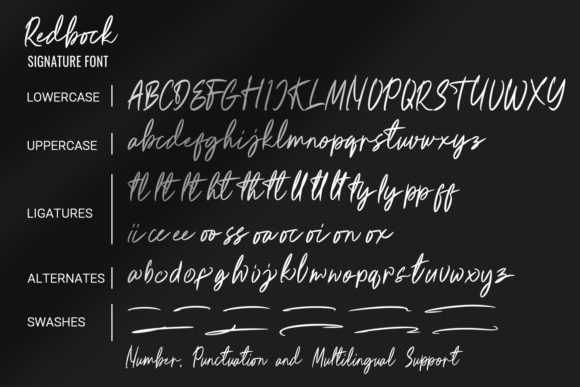 Redbock
SIGNATURE FONT
LOWERCASE ABCDEFGHIJKLMNOPQRSTUVWXY
UPPERCASE abcdefghijklmnopqrstuvwxyz
LIGATURES
ii ce ee oo ss oa oc oi on ox
ALTERNATES abcdefghijklmnopqrstuvwxyz
SWASHES
Number, Punctuation and Multilingual Support